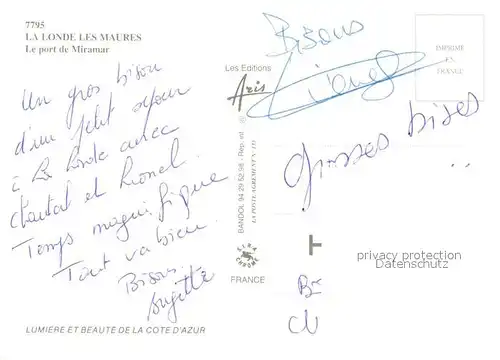 7795
LA LONDE LES MAURES
Le port de Miramar
Un gros bisou
d'un petit séjour
à La Londe avec
Chantal et Lionel.
Temps magnifique
Tout va bien.
Bisous
Brigitte
LUMIERE ET BEAUTE DE LA COTE D'AZUR
Les Editions
Aris
BANDOL 94 29 52 58 - Rép. int.
LA POSTE AGREMENT N°
FRANCE
Bisous
Lionel
IMPRIME
EN
FRANCE
Grosses bises
privacy protection
Datenschutz